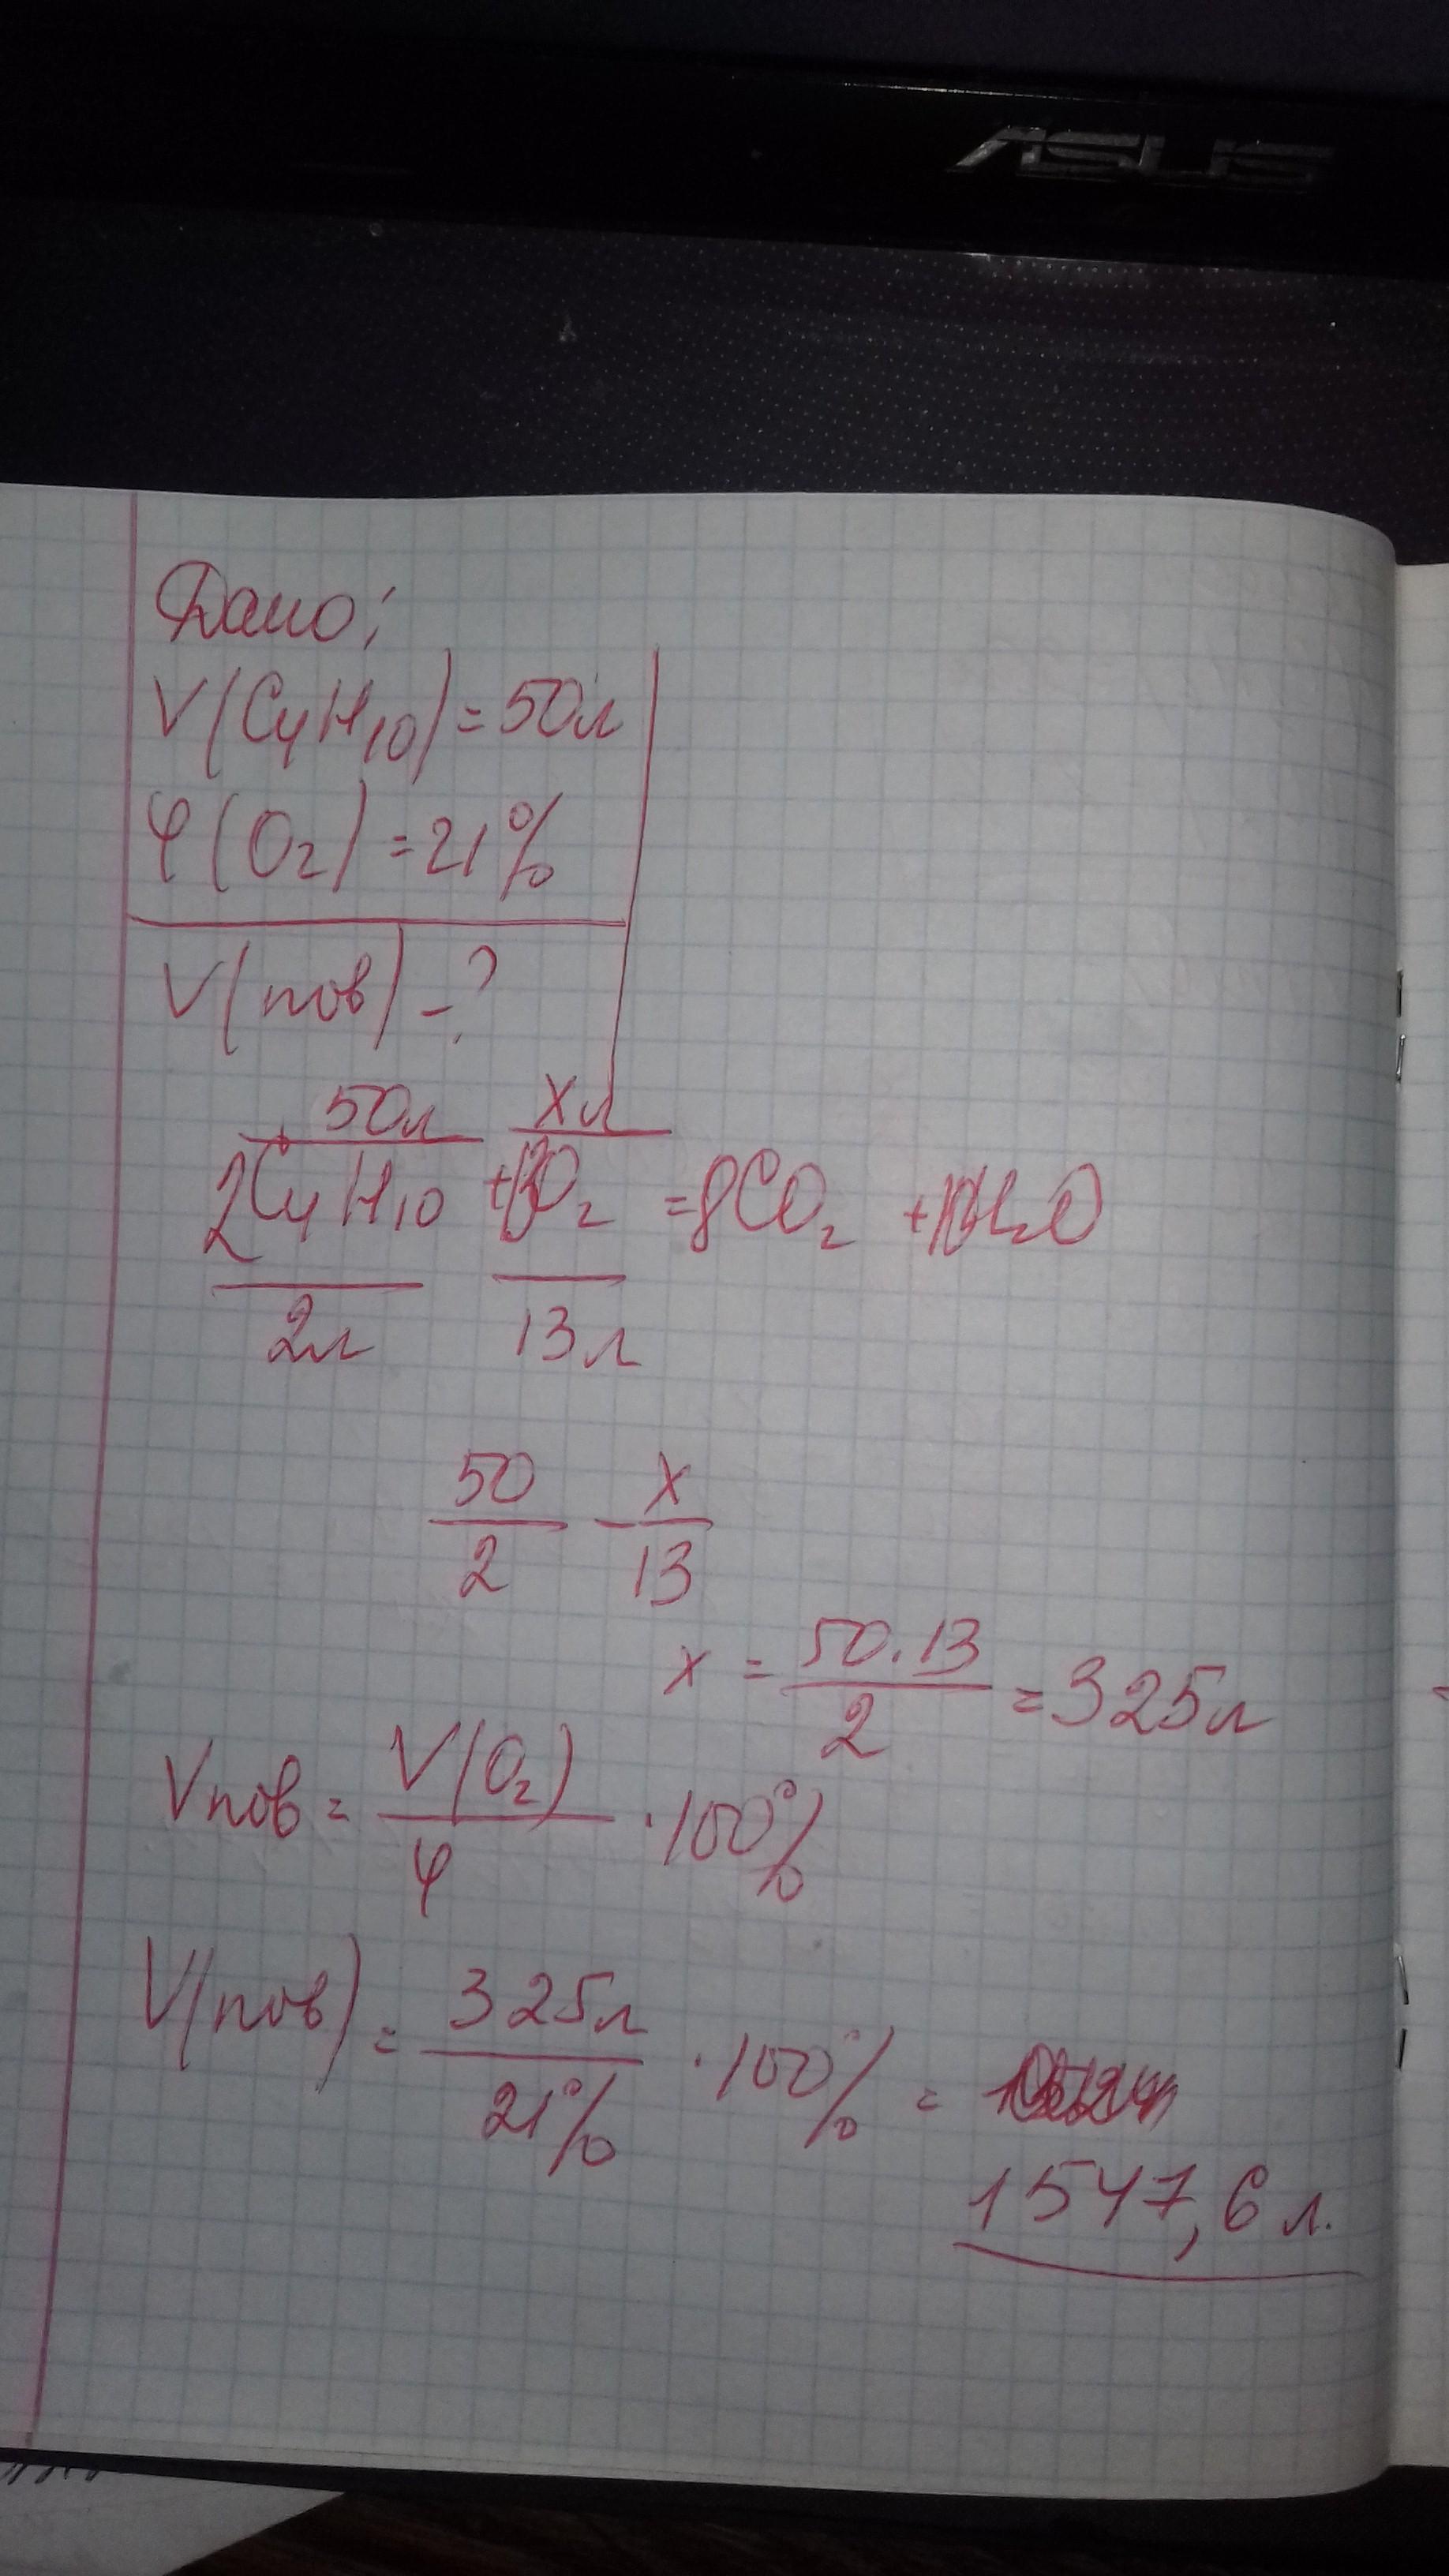 ASUS
Дано:
V(C₄H₁₀) = 50л
φ(O₂) = 21%
V(пов) - ?
50л xл
2C₄H₁₀ + 13O₂ = 8CO₂ + 10H₂O
2л 13л
50/2 - x/13
x = 50·13/2 = 325л
Vпов = V(O₂)/φ · 100%
V(пов) = 325л/21% · 100% =
1547,6 л.